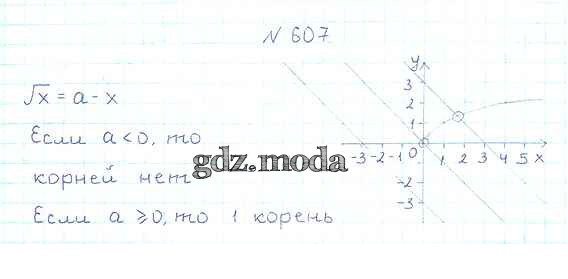 N 607
√x = a - x
Если a < 0, то
корней нет
Если a ≥ 0, то 1 корень
gdz.moda
y
3
2
1
-3 -2 -1 0 1 2 3 4 5 x
-2
-3